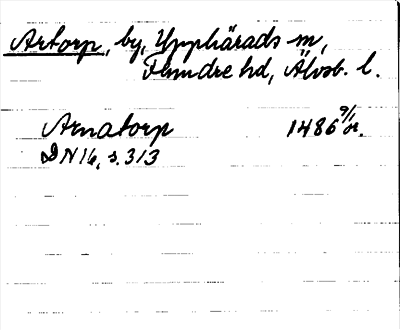 Artorp, by, Upphärads sn,
Flundre hd, Älvsb. l.
Arnatorp 1486 9/
DN 16, s. 313